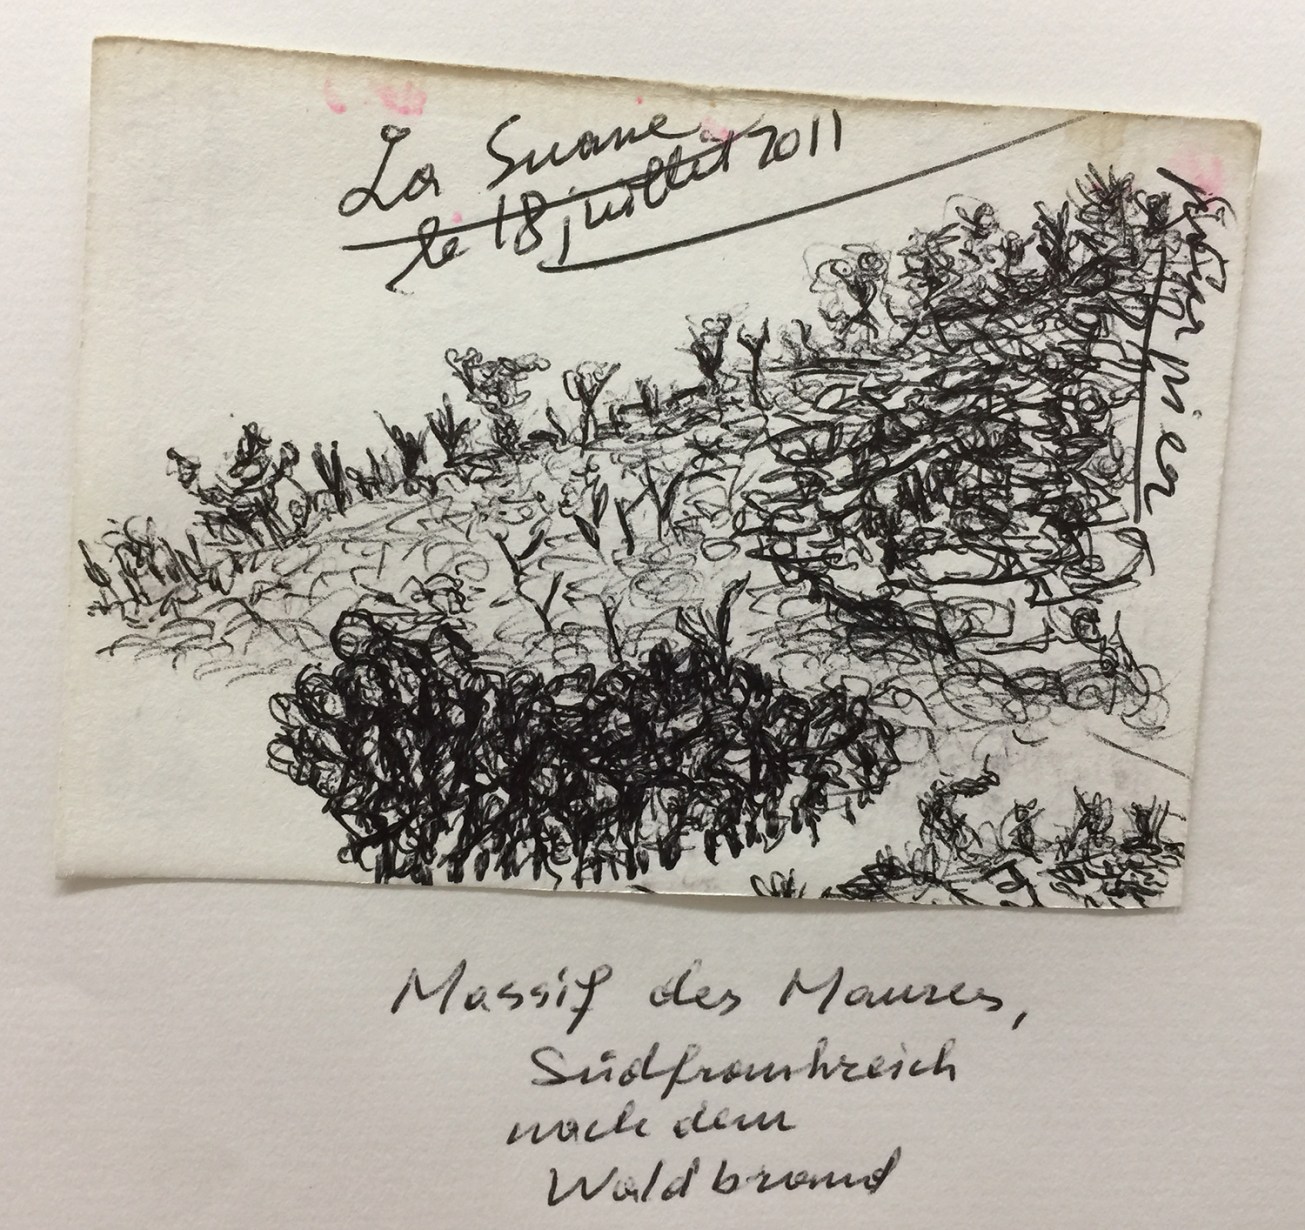 La Suane
le 18 juillet 2011
Massif des Maures,
Südfrankreich
nach dem
Waldbrand